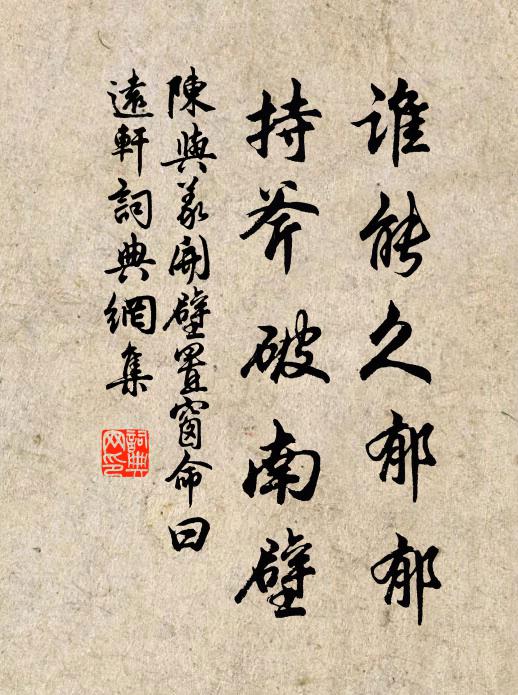 誰能久郁郁
持斧破南壁
陳與義開壁置窗命曰
遠軒詞典網集
詞典网印